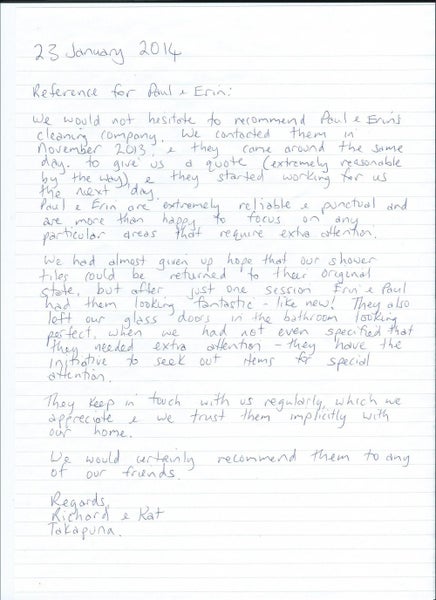 23 January 2014
Reference for Paul & Erin:
We would not hesitate to recommend Paul & Erin's
cleaning company. We contacted them in
November 2013, & they came around the same
day to give us a quote (extremely reasonable
by the way) & they started working for us
the next day.
Paul & Erin are extremely reliable & punctual and
are more than happy to focus on any
particular areas that require extra attention.
We had almost given up hope that our shower
tiles could be returned to their original
state, but after just one session Erin & Paul
had them looking fantastic - like new! They also
left our glass doors in the bathroom looking
perfect, when we had not even specified that
they needed extra attention - they have the
initiative to seek out items for special
attention.
They keep in touch with us regularly, which we
appreciate & we trust them implicitly with
our home.
We would certainly recommend them to any
of our friends.
Regards,
Richard & Kat
Takapuna.